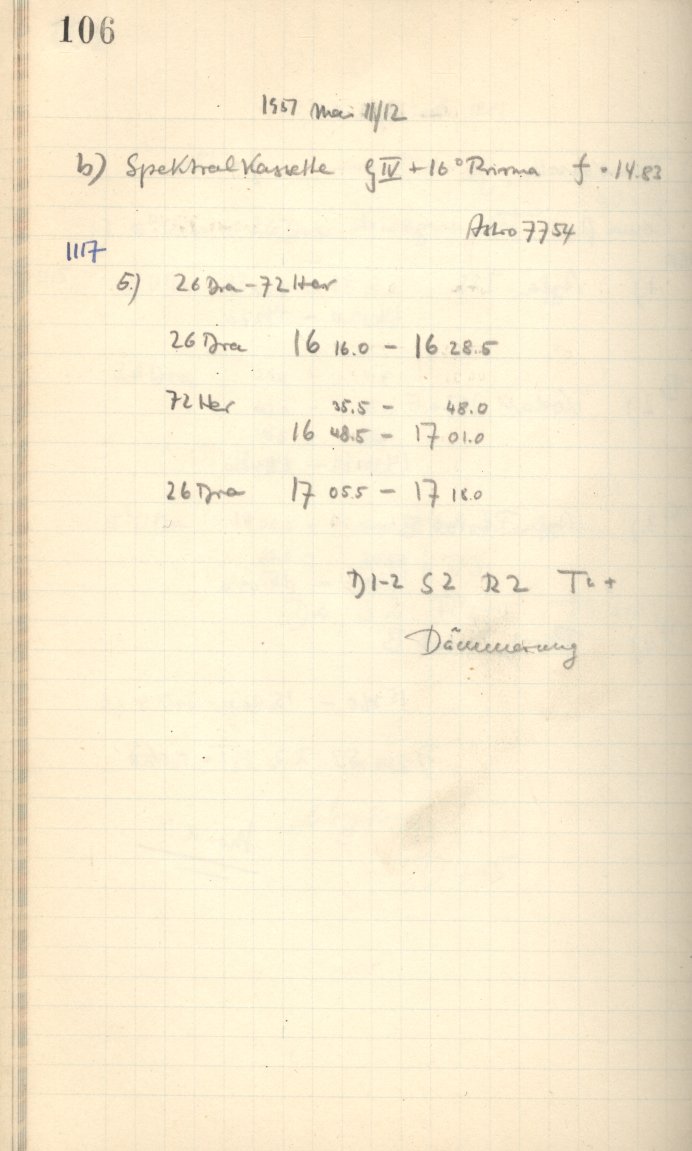 106
1957 Mai 11/12
b) Spektralkassette g IV + 16° Prisma f = 14.83
Astro 7754
1117
5.) 26 Dra - 72 Her
26 Dra 16 16.0 - 16 28.5
72 Her 35.5 - 48.0
16 48.5 - 17 01.0
26 Dra 17 05.5 - 17 18.0
D1-2 S2 R2
Dämmerung